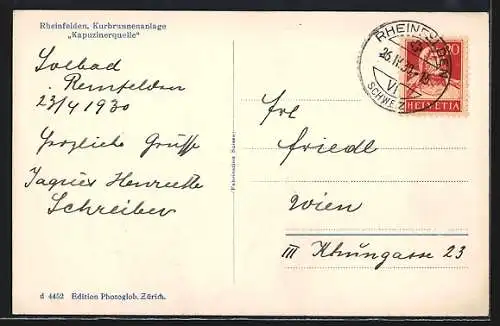 Rheinfelden, Kurbrunnenanlage
„Kapuzinerquelle"
Solbad
Reinfelden
23/4 1930
Herzliche Grüsse
Jaques Henriette
Schreiber
d 4452 Edition Photoglob, Zürich.
Fabrication Suisse.
RHEINFELDEN
VI
SCHWEIZ
20
HELVETIA
Frl
Friedl
Wien
III 23